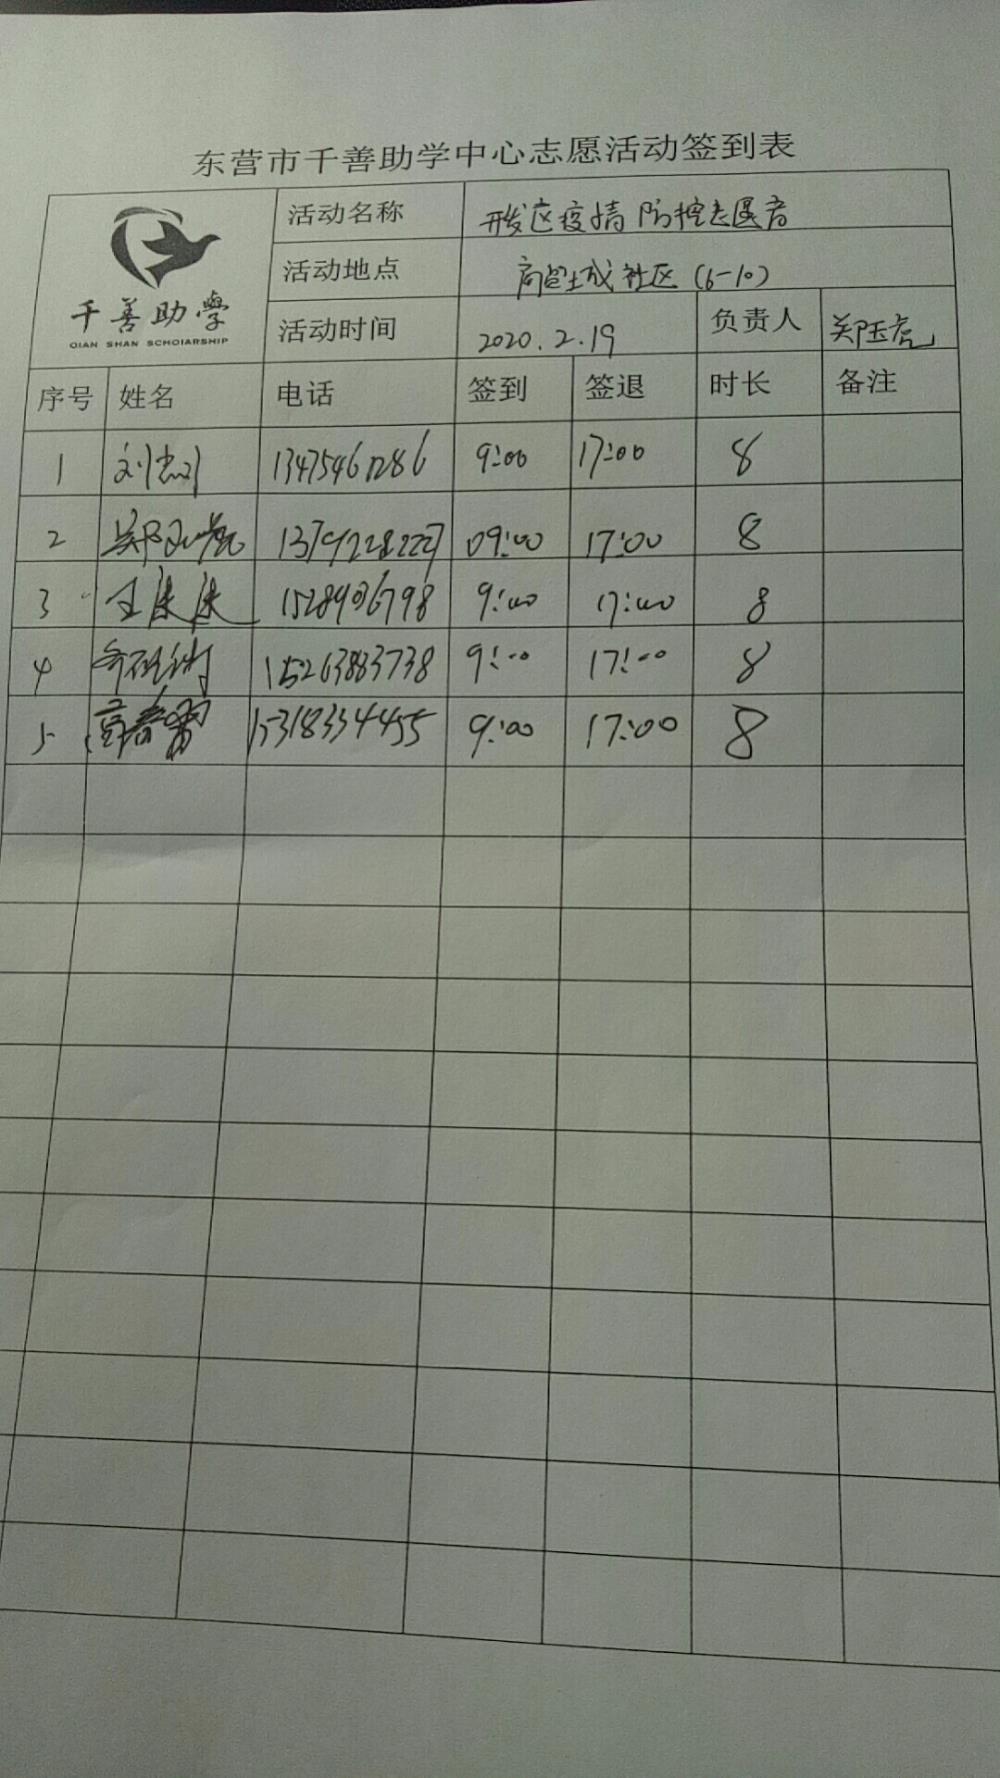 东营市千善助学中心志愿活动签到表
千善助學
QIAN SHAN SCHOIARSHIP
活动名称 开发区疫情防控志愿者
活动地点 商贸城社区(6-10)
活动时间 2020.2.19 负责人 郑玉虎
序号 姓名 电话 签到 签退 时长 备注
1 13475461286 9:00 17:00 8
2 13792282227 09:00 17:00 8
3 9:00 17:00 8
4 15263883738 9:00 17:00 8
5 15318334455 9:00 17:00 8